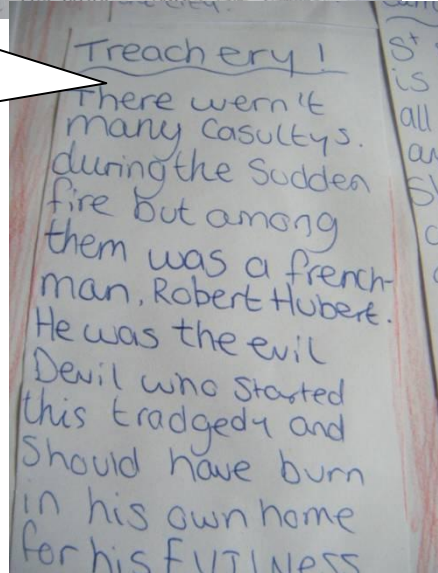 Treachery!
There wern't
many Casultys.
during the Sudden
fire but among
them was a french-
man, Robert Hubert.
He was the evil
Devil who started
this tradgedy and
Should have burn
in his own home
for his EVILNESS
St
is
all